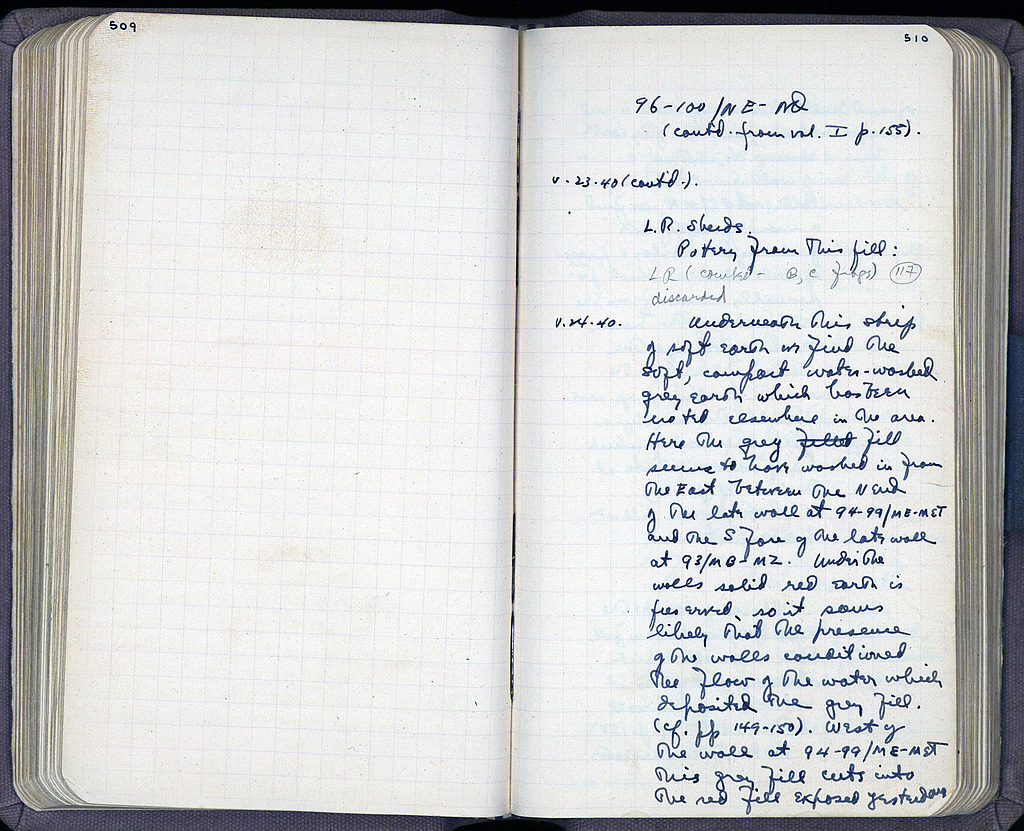 509
510
96-100/ΝΕ-ΝΘ
(cont'd. from vol. I p. 155).
V.23.40 (cont'd.).
L.R. Sherds.
Pottery from this fill:
LR (coarse - B, C frags) 117
discarded
V.24.40. Underneath this strip
of soft earth we find the
soft, compact water-washed
grey earth which has been
noted elsewhere in the area.
Here the grey filled fill
seems to have washed in from
the East between the N end
of the late wall at 94-99/ΜΕ-ΜΣΤ
and the S face of the late wall
at 93/ΜΒ-ΜΖ. Under the
walls solid red earth is
preserved, so it seems
likely that the presence
of the walls conditioned
the flow of the water which
deposited the grey fill.
(cf. pp 149-150). West of
the wall at 94-99/ΜΕ-ΜΣΤ
this grey fill cuts into
the red fill exposed yesterday